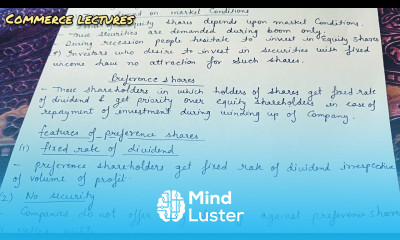 Commerce lectures
on market Conditions
Equity shares depends upon market Conditions.
These securities are demanded during boom only.
During recession people hesitate to invest in equity shares
Investors who desire to invest in securities with fixed
income have no attraction for such shares.
Preference shares
- Those shareholders in which holders of shares get fixed rate
of dividend & get priority over equity shareholders in case of
repayment of investment during winding up of Company.
features of preference shares
(1) fixed rate of dividend
- preference shareholders get fixed rate of dividend irrespective
of volume of profit
2) No security
- Companies do not offer against preference shares
Mind
Luster